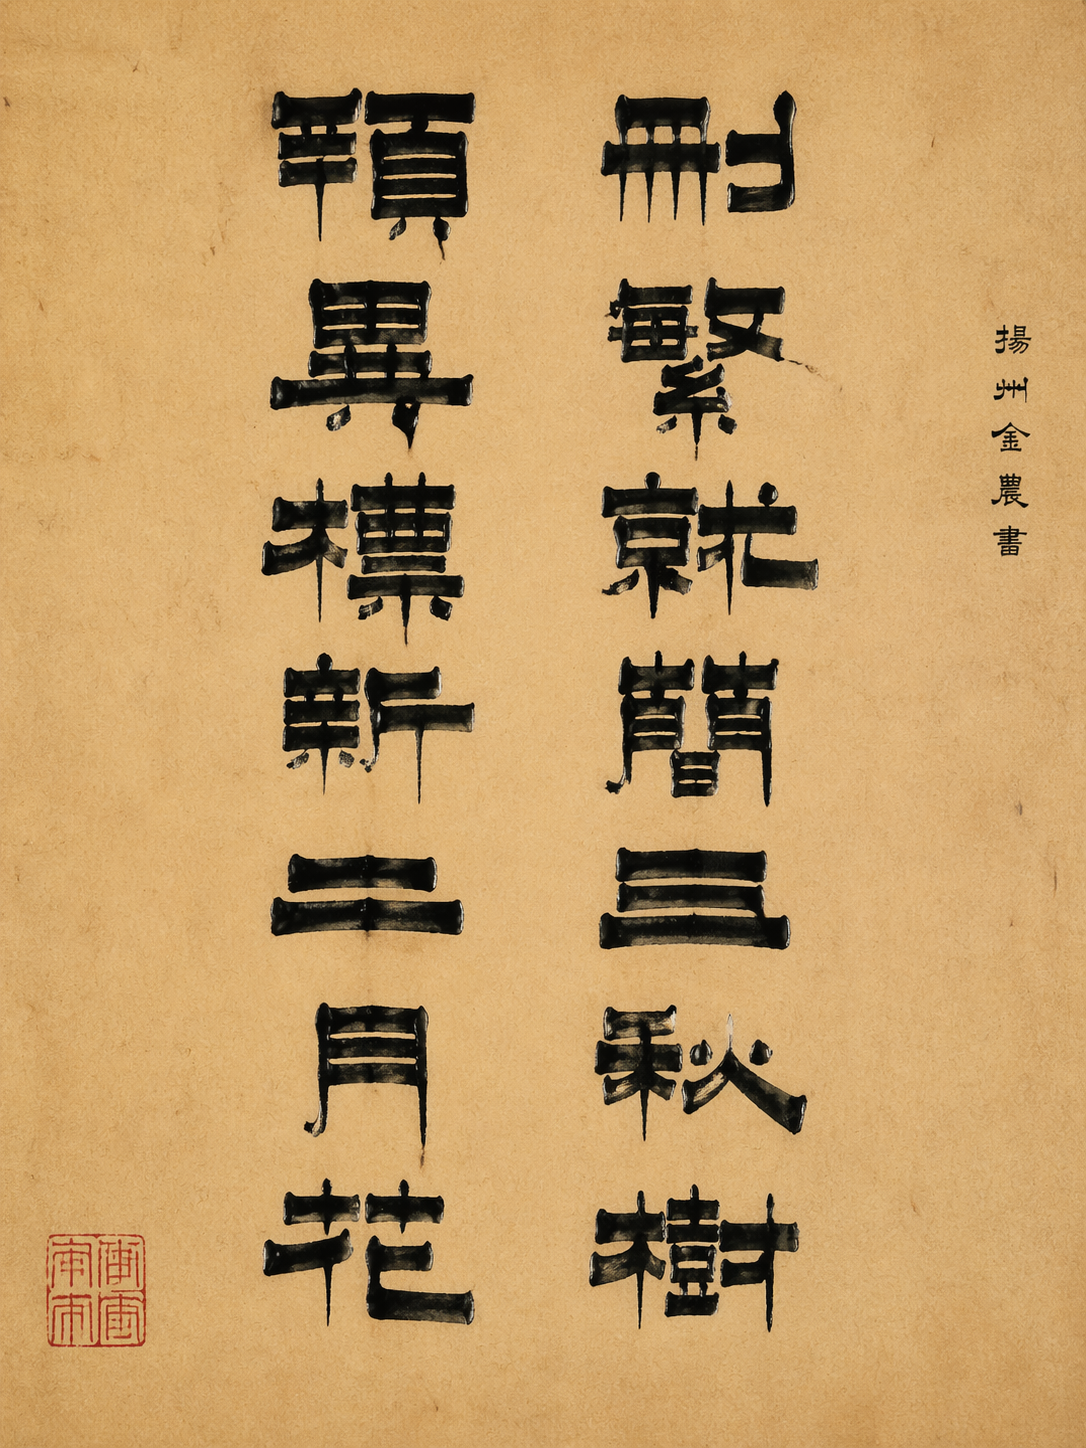 揚州金農書
刪繁就簡三秋樹
異標新二月花